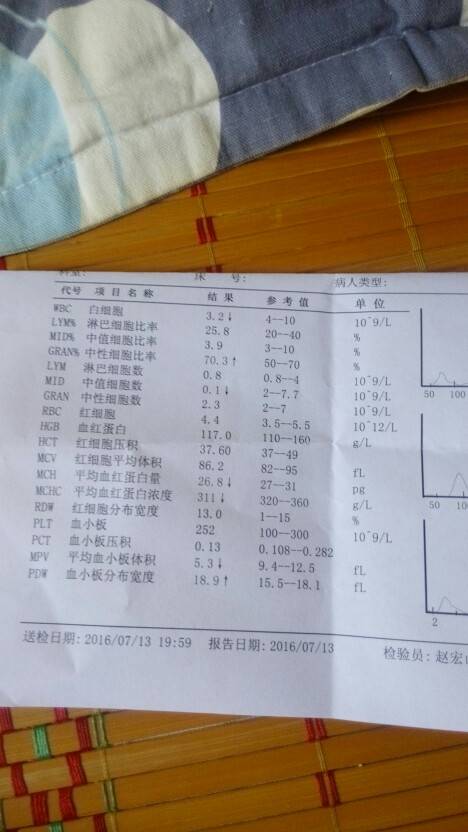 床 号: 病人类型:
代号 项目名称 结果 参考值 单位
WBC 白细胞 3.2↓ 4--10 10^9/L
LYM% 淋巴细胞比率 25.8 20--40 %
MID% 中值细胞比率 3.9 3--10 %
GRAN% 中性细胞比率 70.3↑ 50--70 %
LYM 淋巴细胞数 0.8 0.8--4 10^9/L
MID 中值细胞数 0.1↓ 2--7.7 10^9/L
GRAN 中性细胞数 2.3 2--7 10^9/L
RBC 红细胞 4.4 3.5--5.5 10^12/L
HGB 血红蛋白 117.0 110--160 g/L
HCT 红细胞压积 37.60 37--49
MCV 红细胞平均体积 86.2 82--95 fL
MCH 平均血红蛋白量 26.8↓ 27--31 pg
MCHC 平均血红蛋白浓度 311↓ 320--360 g/L
RDW 红细胞分布宽度 13.0 1--15 %
PLT 血小板 252 100--300 10^9/L
PCT 血小板压积 0.13 0.108--0.282
MPV 平均血小板体积 5.3↓ 9.4--12.5 fL
PDW 血小板分布宽度 18.9↑ 15.5--18.1 fL
50 100
50
2
送检日期:2016/07/13 19:59 报告日期:2016/07/13 检验员:赵宏